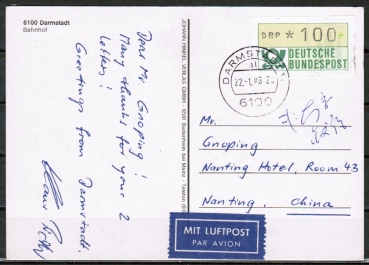 6100 Darmstadt
Bahnhof
Dear Mr. Gnoping!
Many thanks for your 2
letters!
Greetings from Darmstadt.
Klaus
JOHANN HINKEL VERLAG GMBH
DBP * 100 *
DEUTSCHE
BUNDESPOST
DARMSTADT
22.-1.
6100
Mr.
Gnoping
Nanting Hotel, Room 43
Nanting, China
MIT LUFTPOST
PAR AVION